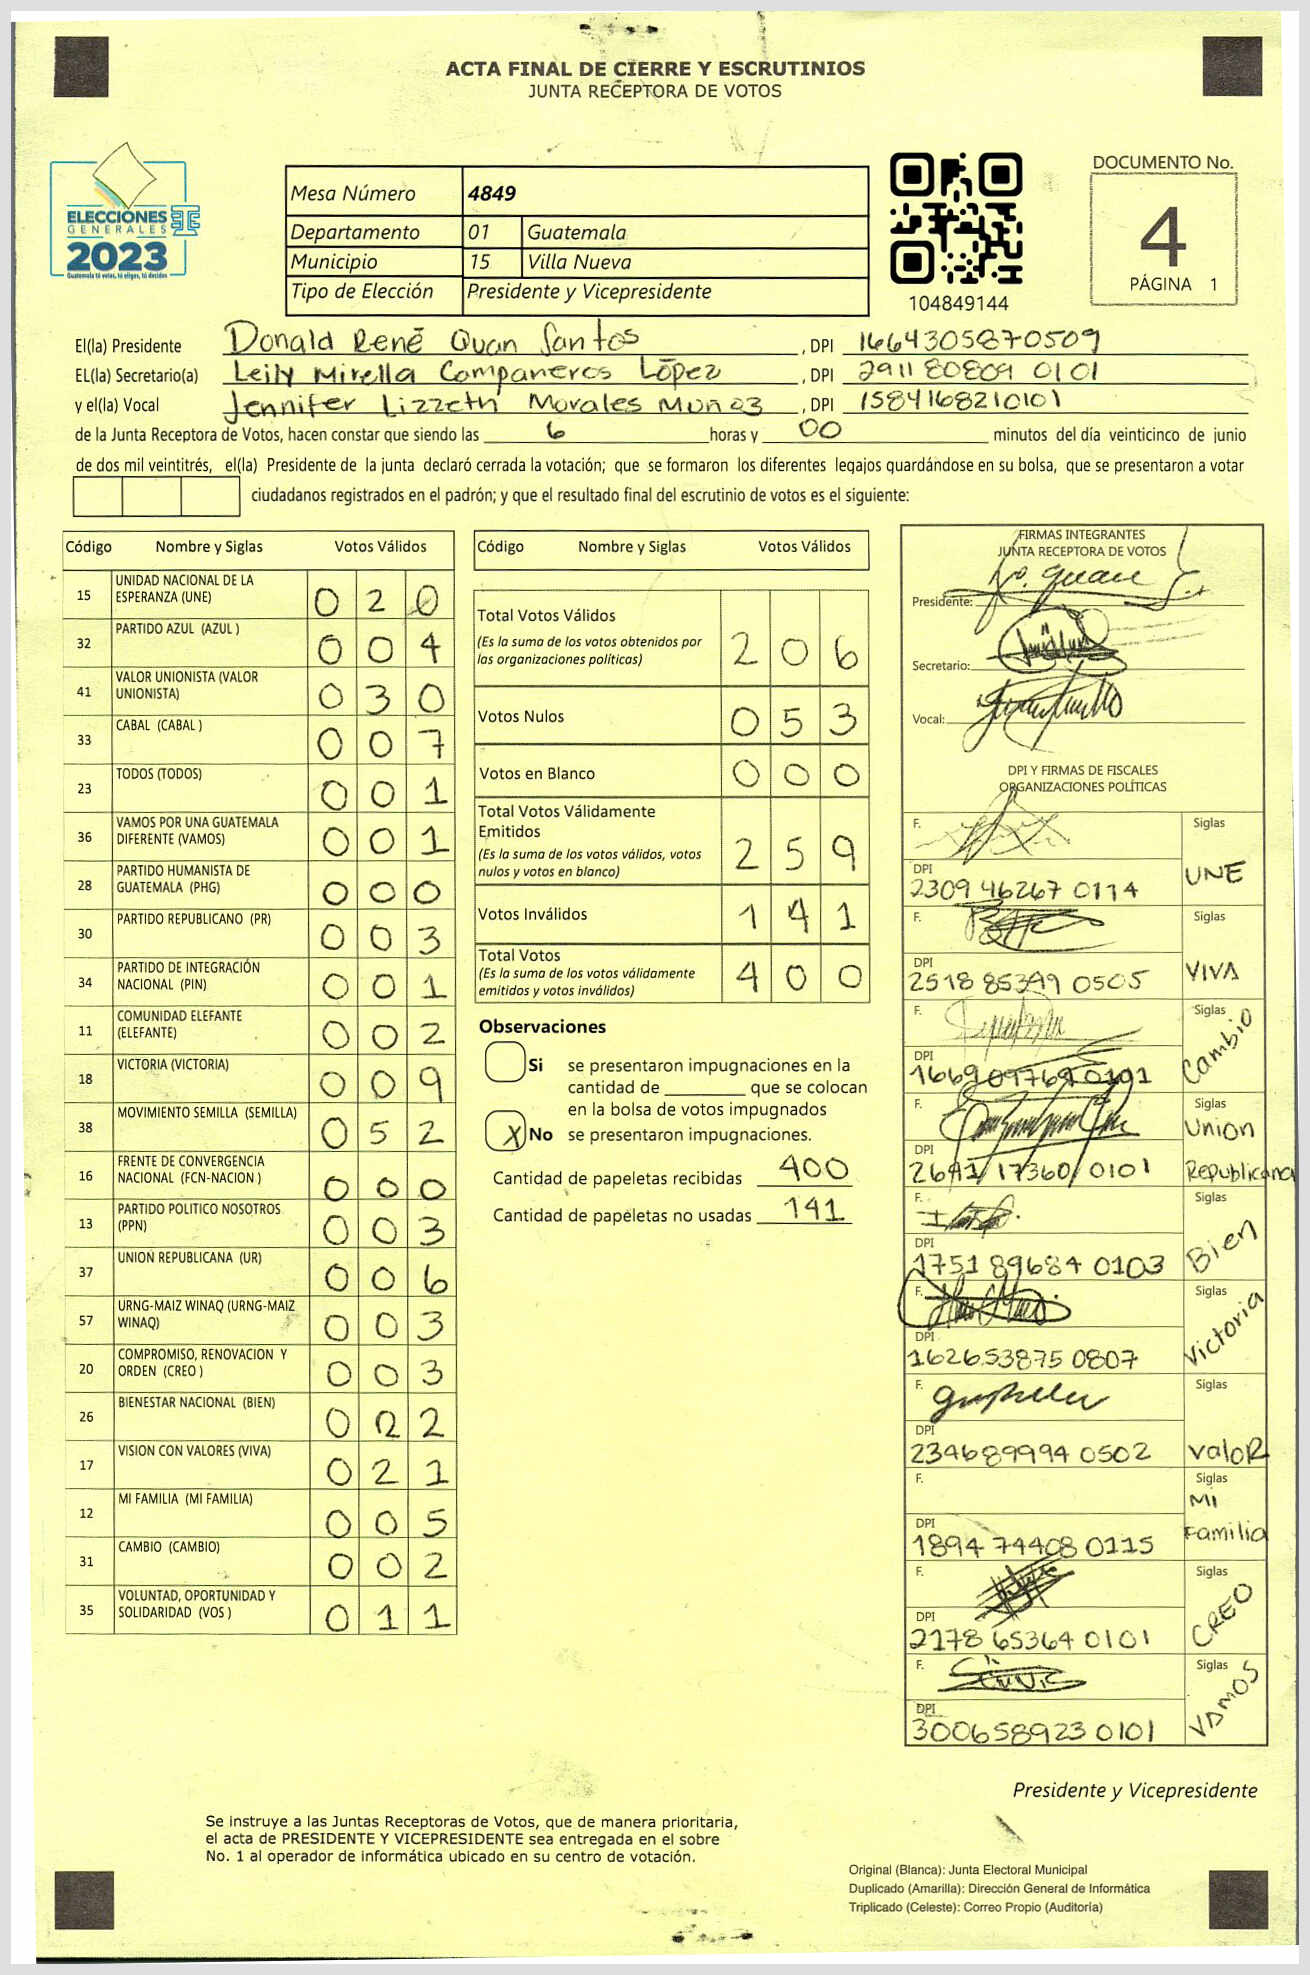 ACTA FINAL DE CIERRE Y ESCRUTINIOS
JUNTA RECEPTORA DE VOTOS
ELECCIONES
GENERALES
2023
Guatemala tú votas, tú eliges, tú decides
Mesa Número 4849
Departamento 01 Guatemala
Municipio 15 Villa Nueva
Tipo de Elección Presidente y Vicepresidente
104849144
DOCUMENTO No.
4
PÁGINA 1
El(la) Presidente Donald René Quan Santos, DPI 1664305870509
EL(la) Secretario(a) Leily Mirella Campaneros López, DPI 2911808090101
y el(la) Vocal Jennifer Lizzeth Morales Muñoz, DPI 1584168210101
de la Junta Receptora de Votos, hacen constar que siendo las 6 horas y 00 minutos del día veinticinco de junio
de dos mil veintitrés, el(la) Presidente de la junta declaró cerrada la votación; que se formaron los diferentes legajos guardándose en su bolsa, que se presentaron a votar
ciudadanos registrados en el padrón; y que el resultado final del escrutinio de votos es el siguiente:
Código Nombre y Siglas Votos Válidos
15 UNIDAD NACIONAL DE LA ESPERANZA (UNE) 0 2 0
32 PARTIDO AZUL (AZUL ) 0 0 4
41 VALOR UNIONISTA (VALOR UNIONISTA) 0 3 0
33 CABAL (CABAL ) 0 0 7
23 TODOS (TODOS) 0 0 1
36 VAMOS POR UNA GUATEMALA DIFERENTE (VAMOS) 0 0 1
28 PARTIDO HUMANISTA DE GUATEMALA (PHG) 0 0 0
30 PARTIDO REPUBLICANO (PR) 0 0 3
34 PARTIDO DE INTEGRACIÓN NACIONAL (PIN) 0 0 1
11 COMUNIDAD ELEFANTE (ELEFANTE) 0 0 2
18 VICTORIA (VICTORIA) 0 0 9
38 MOVIMIENTO SEMILLA (SEMILLA) 0 5 2
16 FRENTE DE CONVERGENCIA NACIONAL (FCN-NACION ) 0 0 0
13 PARTIDO POLITICO NOSOTROS (PPN) 0 0 3
37 UNION REPUBLICANA (UR) 0 0 6
57 URNG-MAIZ WINAQ (URNG-MAIZ WINAQ) 0 0 3
20 COMPROMISO, RENOVACION Y ORDEN (CREO ) 0 0 3
26 BIENESTAR NACIONAL (BIEN) 0 2 2
17 VISION CON VALORES (VIVA) 0 2 1
12 MI FAMILIA (MI FAMILIA) 0 0 5
31 CAMBIO (CAMBIO) 0 0 2
35 VOLUNTAD, OPORTUNIDAD Y SOLIDARIDAD (VOS ) 0 1 1
Código Nombre y Siglas Votos Válidos
Total Votos Válidos
(Es la suma de los votos obtenidos por
las organizaciones políticas) 2 0 6
Votos Nulos 0 5 3
Votos en Blanco 0 0 0
Total Votos Válidamente
Emitidos
(Es la suma de los votos válidos, votos
nulos y votos en blanco) 2 5 9
Votos Inválidos 1 4 1
Total Votos
(Es la suma de los votos válidamente
emitidos y votos inválidos) 4 0 0
Observaciones
Si se presentaron impugnaciones en la
cantidad de ________ que se colocan
en la bolsa de votos impugnados
X No se presentaron impugnaciones.
Cantidad de papeletas recibidas 400
Cantidad de papeletas no usadas 141
FIRMAS INTEGRANTES
JUNTA RECEPTORA DE VOTOS
Presidente:
Secretario:
Vocal:
DPI Y FIRMAS DE FISCALES
ORGANIZACIONES POLÍTICAS
F. Siglas
DPI
2309 46267 0114 UNE
F. Siglas
DPI
2518 85399 0505 VIVA
F. Siglas
DPI
1669 09769 0101 Cambio
F. Siglas
DPI
Union
17360 0101 Republicana
F. Siglas
DPI
1751 89684 0103 Bien
F. Siglas
DPI
162653875 0807 Victoria
F. Siglas
DPI
234689994 0502 ValoR
F. Siglas
DPI
1894 74408 0115 Mi Familia
F. Siglas
DPI
2178 65364 0101 CREO
F. Siglas
DPI
300658923 0101 VAMOS
Presidente y Vicepresidente
Se instruye a las Juntas Receptoras de Votos, que de manera prioritaria,
el acta de PRESIDENTE Y VICEPRESIDENTE sea entregada en el sobre
No. 1 al operador de informática ubicado en su centro de votación.
Original (Blanca): Junta Electoral Municipal
Duplicado (Amarilla): Dirección General de Informática
Triplicado (Celeste): Correo Propio (Auditoría)